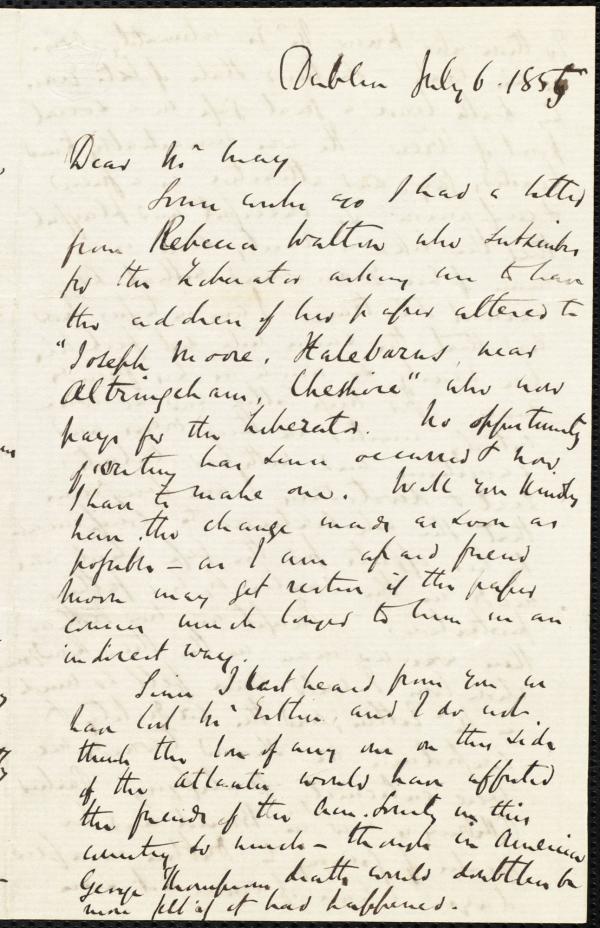 Dublin July 6. 1855
Dear Mr May
Some weeks ago I had a letter
from Rebecca Walton who subscribes
for the Liberator asking me to have
the address of her paper altered to
"Joseph Moore, Halebarns, near
Altringcham, Cheshire" who now
pays for the Liberator. No opportunity
of writing has since occurred & now
I have to make one. Will you kindly
have the change made as soon as
possible — as I am afraid friend
Moore may get restive if the paper
comes much longer to him in an
indirect way.
Since I last heard from you we
have lost Mr Estlin and I do not
think the loss of any one on this side
of the Atlantic would have affected
the friends of the Am. Society in this
country so much — though in America
George Thompson's death would doubtless be
more felt if it had happened.